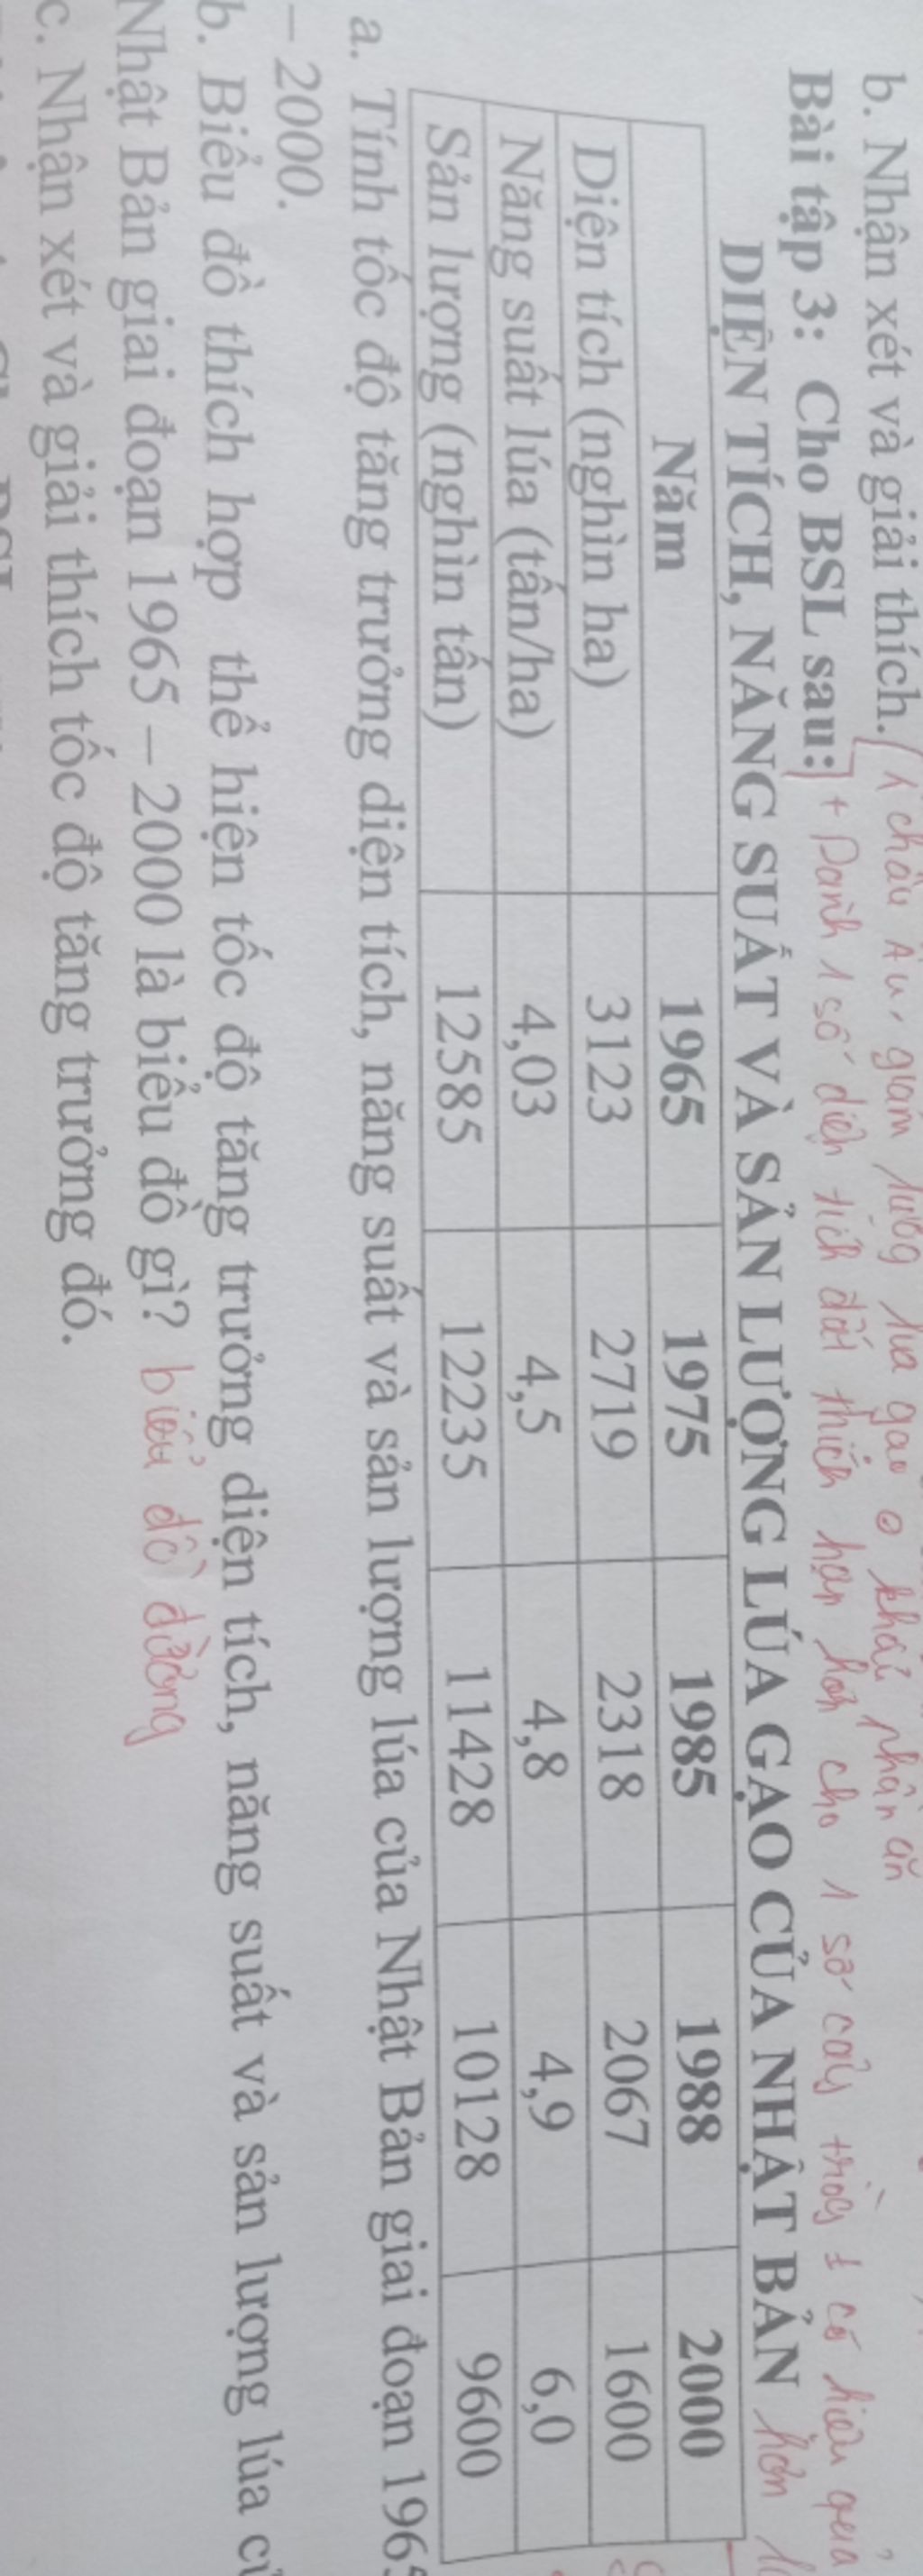 b. Nhận xét và giải thích. châu Âu, giảm lượng lúa gạo o khẩu phần ăn
Bài tập 3: Cho BSL sau: + Dành 1 số diện tích đất thích hợp hơn cho 1 số cây trồng có hiệu quả
DIỆN TÍCH, NĂNG SUẤT VÀ SẢN LƯỢNG LÚA GẠO CỦA NHẬT BẢN hơn
Năm 1965 1975 1985 1988 2000
Diện tích (nghìn ha) 3123 2719 2318 2067 1600
Năng suất lúa (tấn/ha) 4,03 4,5 4,8 4,9 6,0
Sản lượng (nghìn tấn) 12585 12235 11428 10128 9600
a. Tính tốc độ tăng trưởng diện tích, năng suất và sản lượng lúa của Nhật Bản giai đoạn 1965
– 2000.
b. Biểu đồ thích hợp thể hiện tốc độ tăng trưởng diện tích, năng suất và sản lượng lúa củ
Nhật Bản giai đoạn 1965 – 2000 là biểu đồ gì? biểu đồ đường
c. Nhận xét và giải thích tốc độ tăng trưởng đó.